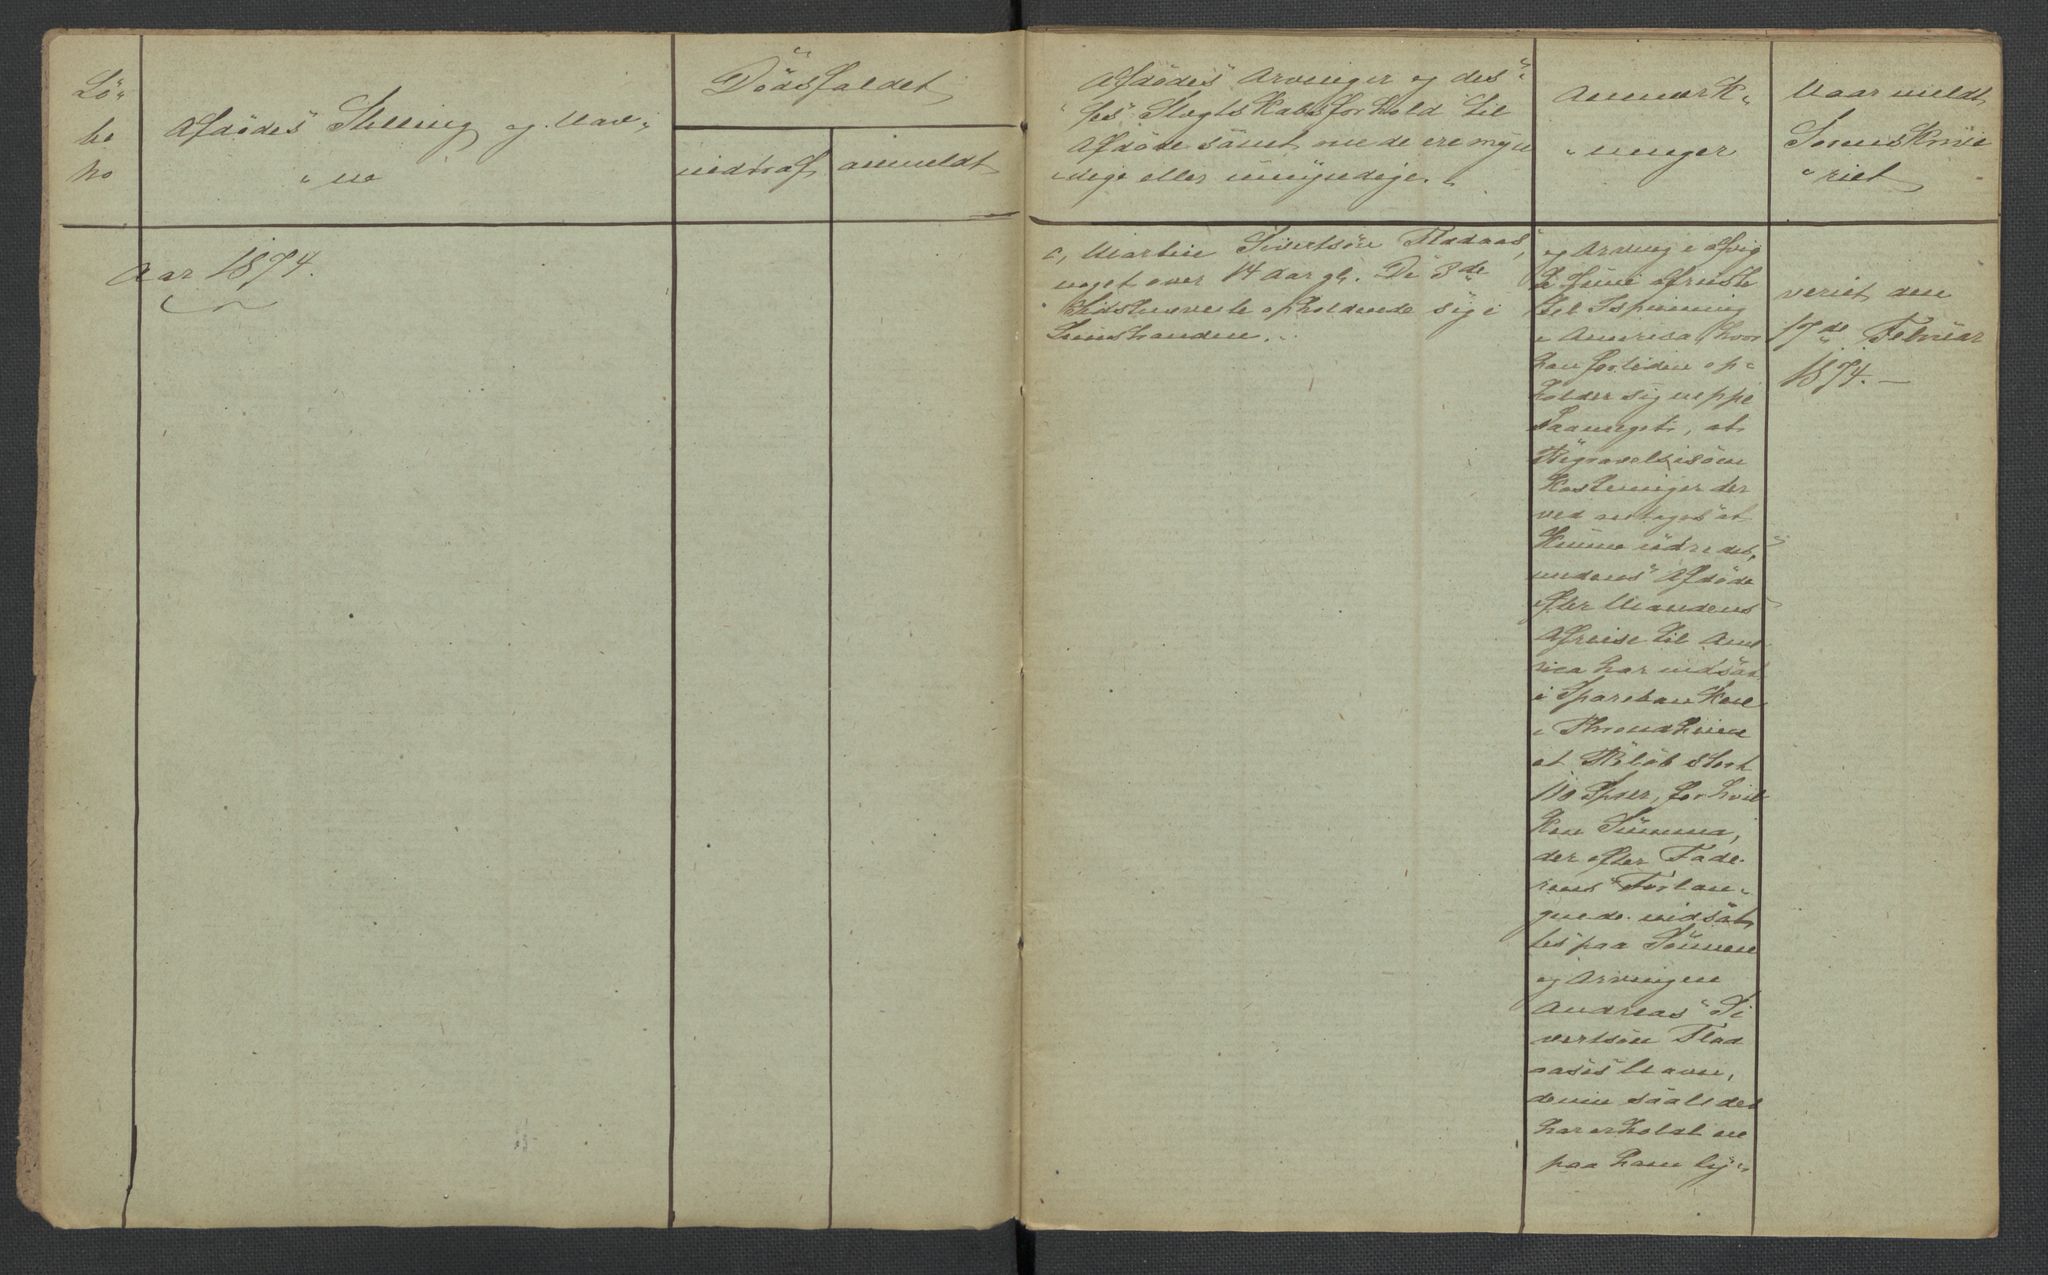 Lö-
be
no
Afdödes Stilling og Nav-
ne
Dödsfaldet
indtraf
anmeldt
Afdödes Arvinger og des-
ses Slægtskabsforhold til
Afdöde samt om de ere myn
dige eller umyndige.
Anmærk-
ninger
Naar meldt
Sorenskrive
riet
Aar 1874.
c, Martin Sivertsön Fladaas,
noget over 14 Aar gl. De 3de
Sidstnævnte opholdende sig i
Trondhjem
og Arving i afvig
te afreiste
til Ispiming
i America, hvor
han fortiden op-
holder sig neppe
Saameget, at
Begravelsesom
kostninger der
ved antages at
kunne udredet,
medens Afdöde
efter Mandens
Afreise til Ame
rica har indsat
i Sparebanken
i Throndhjem
et Belöb stort
110 Spdr, for hvil
ken Summa,
der efter Fade-
rens Forlan-
gnede indsat
tes paa Sönnen
og Arvingen
Andreas Si
vertsön Flad
aases Navn,
denne saaledes
har erholdt en
paa ham ly-
veriet den
17de Februar
1874.